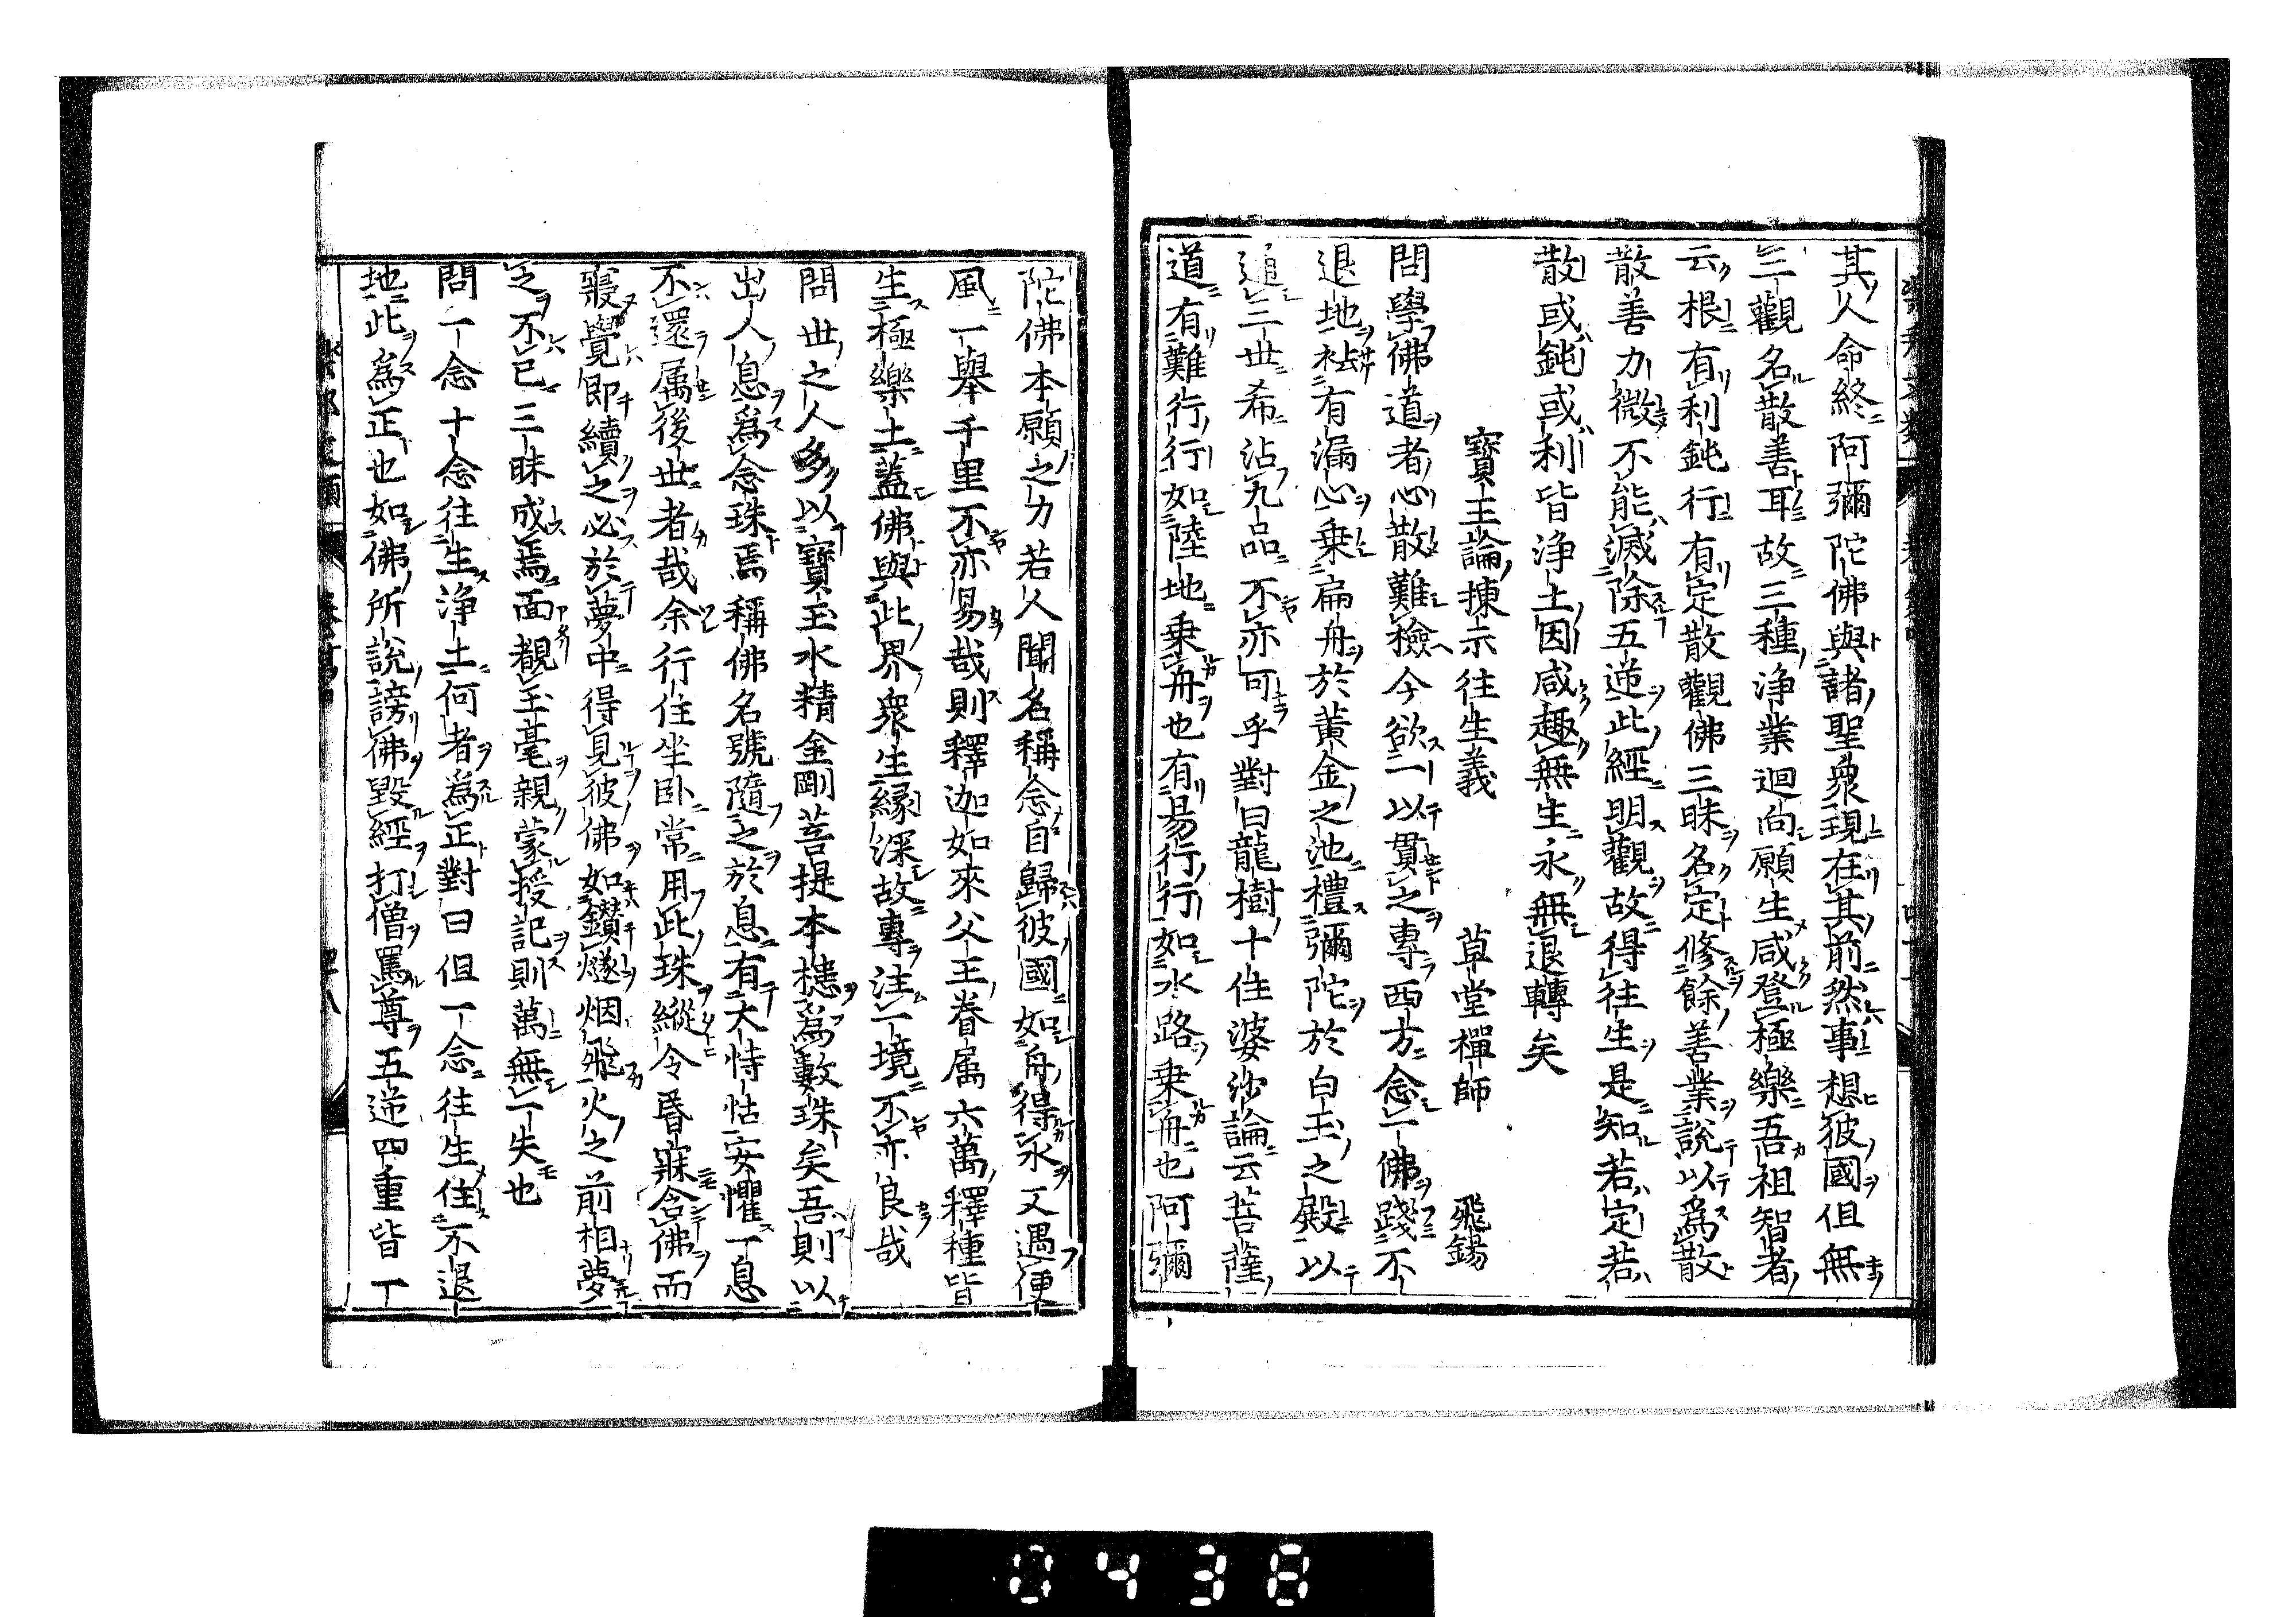 其人命終阿彌陀佛與諸聖衆現在其前然事想彼國但無
三觀名散善耳故三種淨業迴向願生咸登極樂吾祖智者
云根有利鈍行有定散觀佛三昧名定修餘善業說以爲散
散善力微不能滅除五逆此經明觀故得往生是知若定若
散或鈍或利皆淨土因咸趣無生永無退轉矣
寶王論揀示往生義 草堂禪師 飛錫
問學佛道者心散難檢今欲一以貫之專西方念一佛踐不
退地袪有漏心乗扁舟於黄金之池禮彌陀於白玉之殿以
通三世希沾九品不亦可乎對曰龍樹十住婆沙論云菩薩
道有難行行如陸地乗舟也有易行行如水路乗舟也阿彌
陀佛本願之力若人聞名稱念自歸彼國如舟得水又遇便
風一舉千里不亦易哉則釋迦如來父王眷属六萬釋種皆
生極樂土蓋佛與此界衆生縁深故專注一境不亦良哉
問世之人多以寶玉水精金剛菩提本槵爲數珠矣吾則以
出入息爲念珠焉稱佛名號隨之於息有大恃怙安懼一息
不還属後世者哉余行住坐卧常用此珠縱令昏寐含佛而
寢覺即續之必於夢中得見彼佛如鑚燧烟飛火之前相夢
之不已三昧成焉面覩玉毫親蒙授記則萬無一失也
問一念十念往生淨土何者爲正對曰但一念往生住不退
地此爲正也如佛所說謗佛毀經打僧罵尊五逆四重皆一
樂邦文類 四十八
0438